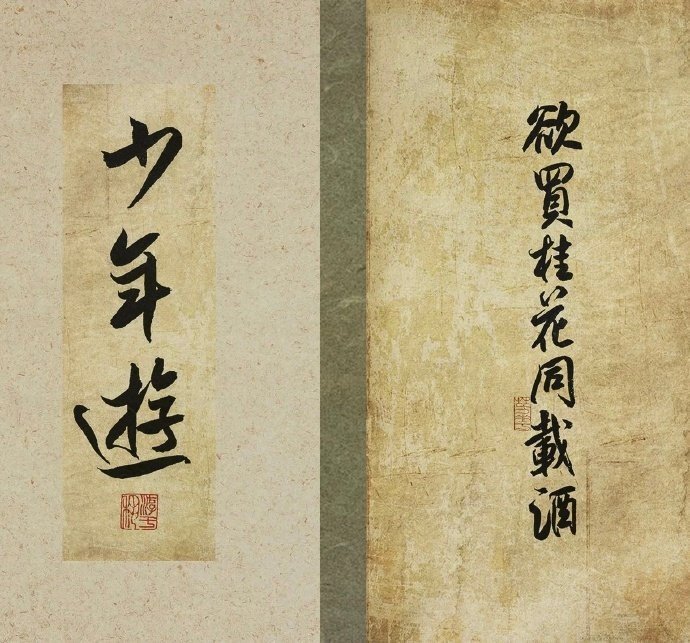 少年遊
欲買桂花同載酒